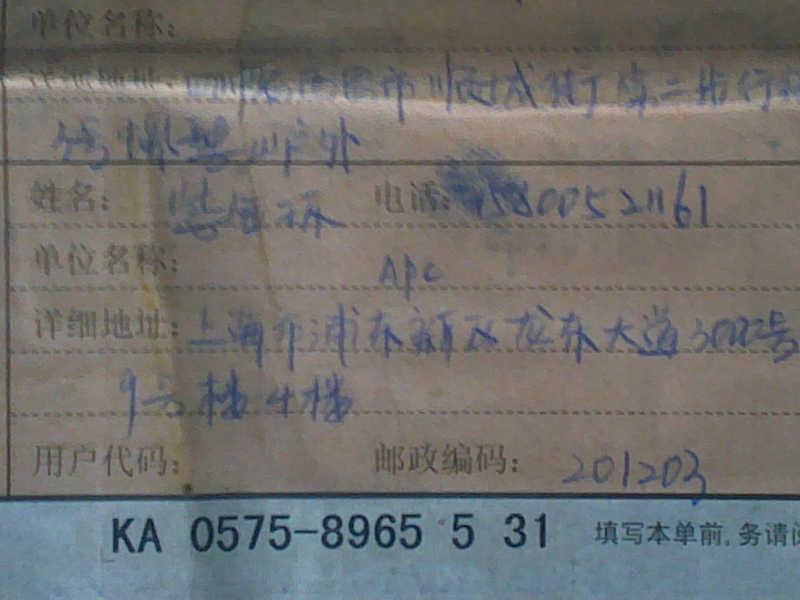 单位名称:
详细地址: 市顺城街 第二步行
户外
姓名: 电话: 15800521161
单位名称: APC
详细地址: 上海市浦东新区龙东大道3000号
9号楼4楼
用户代码: 邮政编码: 201203
KA 0575-8965 5 31 填写本单前,务请